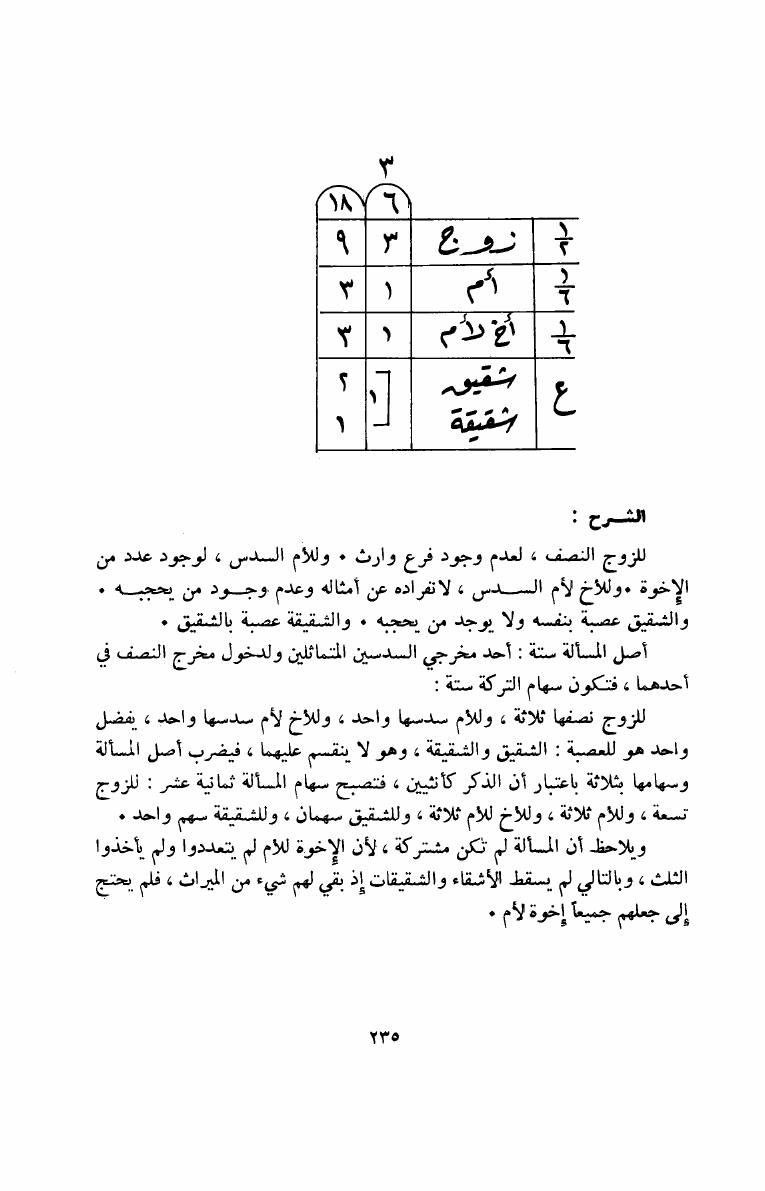 ٣
١٨ ٦
١/٢ زوج ٣ ٩
١/٦ أم ١ ٣
١/٦ أخ لأم ١ ٣
ع شقيق ١ ٢
شقيقة ١
الشرح :
للزوج النصف ، لعدم وجود فرع وارث • وللأم السدس ، لوجود عدد من
الإخوة •وللأخ لأم السدس ، لانفراده عن أمثاله وعدم وجود من يحجبه •
والشقيق عصبة بنفسه ولا يوجد من يحجبه • والشقيقة عصبة بالشقيق •
أصل المسألة ستة : أحد مخرجي السدسين المتماثلين ولدخول مخرج النصف في
أحدهما ، فتكون سهام التركة ستة :
للزوج نصفها ثلاثة ، وللأم سدسها واحد ، وللأخ لأم سدسها واحد ، يفضل
واحد هو للعصبة : الشقيق والشقيقة ، وهو لا ينقسم عليهما ، فيضرب أصل المسألة
وسهامها بثلاثة باعتبار أن الذكر كأنثيين ، فتصبح سهام المسألة ثمانية عشر : للزوج
تسعة ، وللأم ثلاثة ، وللأخ للأم ثلاثة ، وللشقيق سهمان ، وللشقيقة سهم واحد •
ويلاحظ أن المسألة لم تكن مشتركة ، لأن الإخوة للأم لم يتعددوا ولم يأخذوا
الثلث ، وبالتالي لم يسقط الأشقاء والشقيقات إذ بقي لهم شيء من الميراث ، فلم يحتج
إلى جعلهم جميعاً إخوة لأم •
٢٣٥